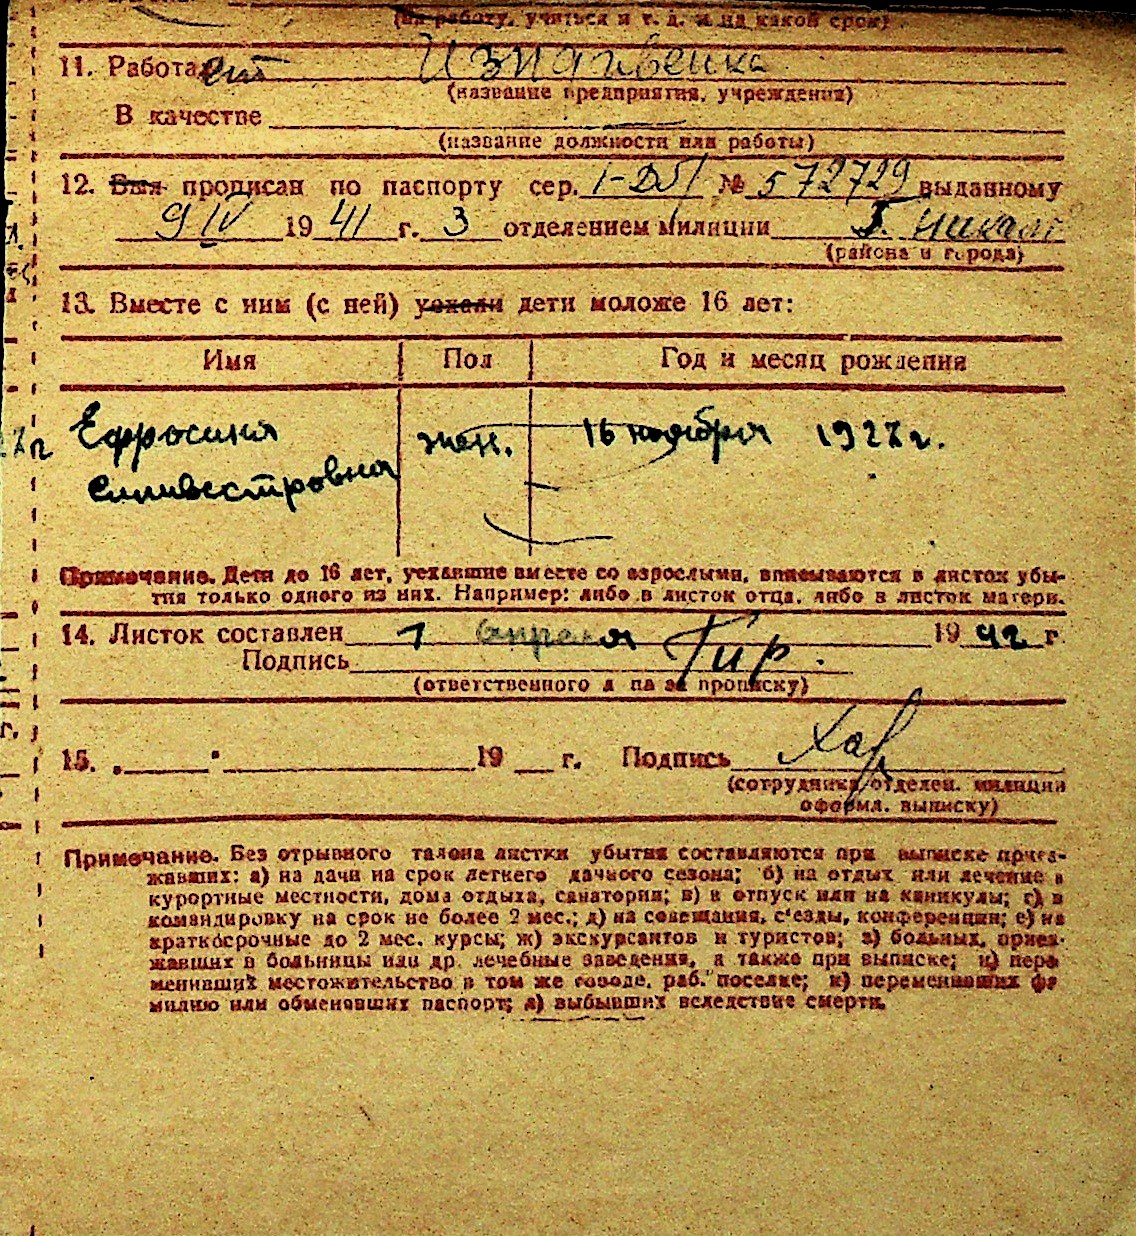 (на работу, учиться и т. д. и на какой срок)
11. Работает Иждивенка
(название предприятия, учреждения)
В качестве
(название должности или работы)
12. Был прописан по паспорту сер. 1-ДБ № 572729 выданному
9 IV 1941 г. 3 отделением милиции
(района и города)
13. Вместе с ним (с ней) уехали дети моложе 16 лет:
Имя Пол Год и месяц рождения
Ефросиния жен. 16 ноября 1927 г.
Силивестровна
Примечание. Дети до 16 лет, уехавшие вместе со взрослыми, вписываются в листок убы-
тия только одного из них. Например: либо в листок отца, либо в листок матери.
14. Листок составлен 1 апреля 1942 г
Подпись
(ответственного л па за прописку)
15. „ " 19 г. Подпись
(сотрудника отделен. милиции
оформл. выписку)
Примечание. Без отрывного талона листки убытия составляются при выписке приез-
жавших: а) на дачи на срок летнего дачного сезона; б) на отдых или лечение в
курортные местности, дома отдыха, санатории; в) в отпуск или на каникулы; г) в
командировку на срок не более 2 мес.; д) на совещания, с'езды, конференции; е) на
краткосрочные до 2 мес. курсы; ж) экскурсантов и туристов; з) больных, приез-
жавших в больницы или др. лечебные заведения, а также при выписке; и) пере
менивших местожительство в том же городе, раб. поселке; к) переменивших фа
милию или обменявших паспорт; л) выбывших вследствие смерти.